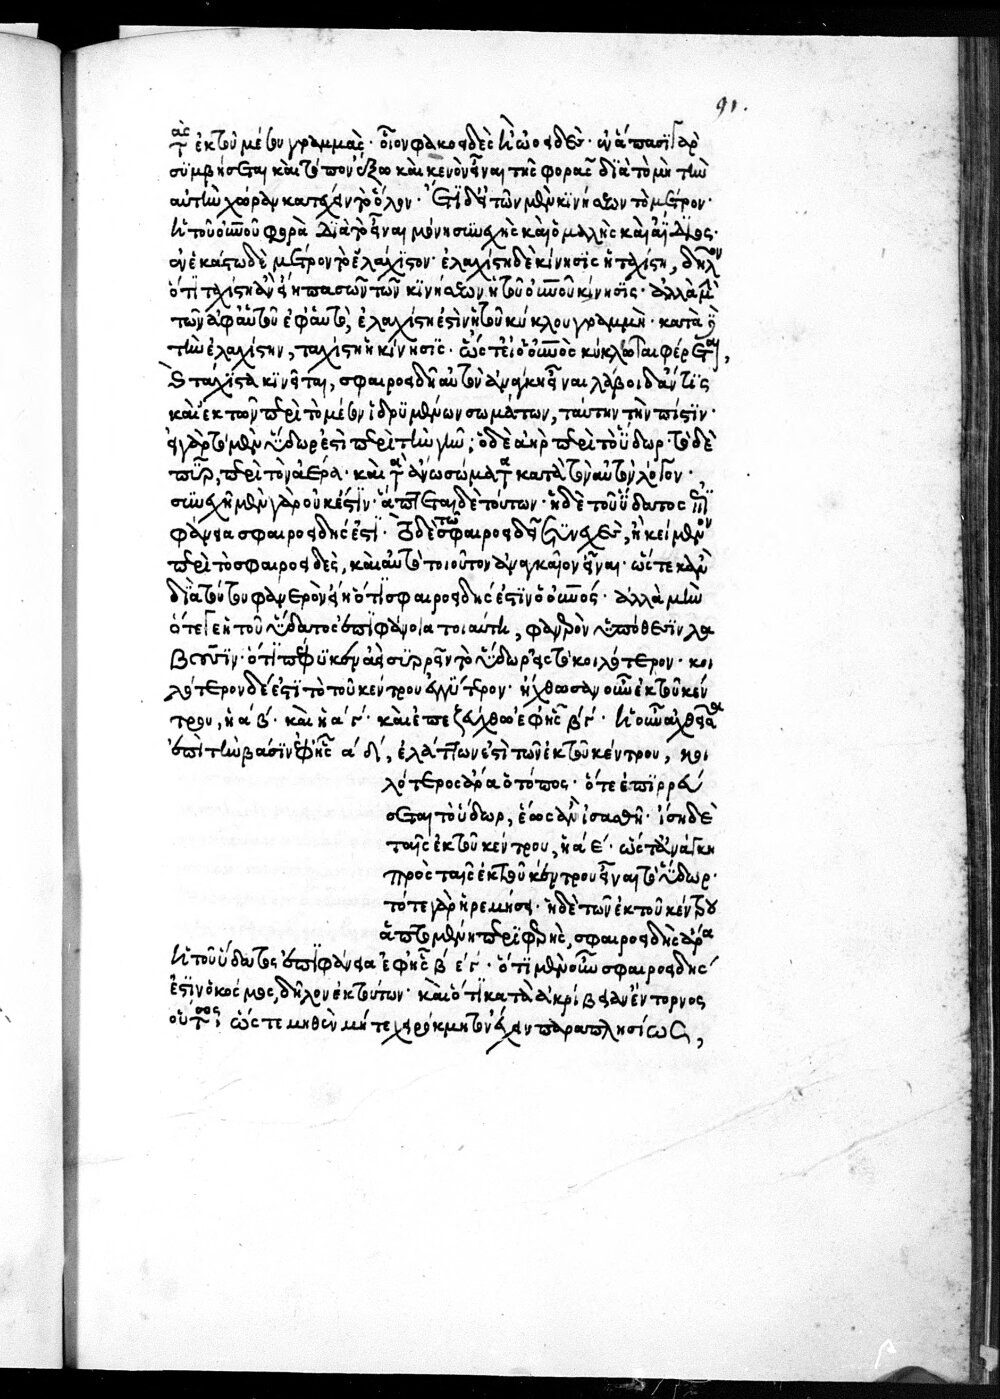 91.
τὰς ἐκ τοῦ μέσου γραμμάς· οἷον φακοειδὲς ἢ ὠοειδὲς· ἐν ἅπασι γὰρ
συμβήσεται καὶ τόπον ἔξω καὶ κενὸν εἶναι τῆς φορᾶς διὰ τὸ μὴ τὴν
αὐτὴν χώραν κατέχειν τὸ ὅλον· ἔτι δὲ τῶν μὲν κινήσεων τὸ μέτρον·
ἡ τοῦ οὐρανοῦ φορὰ διὰ τὸ εἶναι μόνη συνεχὴς καὶ ὁμαλὴς καὶ ἀΐδιος·
ἐν ἑκάστω δὲ μέτρον τὸ ἐλάχιστον· ἐλαχίστη δὲ κίνησις ἡ ταχίστη, δῆλον
ὅτι ταχίστη ἂν εἴη πασῶν τῶν κινήσεων ἡ τοῦ οὐρανοῦ κίνησις· ἀλλὰ μὴν
τῶν ἀφ' αὑτοῦ ἐφ' αὑτὸ, ἐλαχίστη ἐστὶν ἡ τοῦ κύκλου γραμμή· κατὰ δὲ
τὴν ἐλαχίστην, ταχίστη ἡ κίνησις· ὥστ' εἰ ὁ οὐρανὸς κύκλω τε φέρεται,
καὶ τάχιστα κινεῖται, σφαιροειδῆ αὐτὸν ἀνάγκη εἶναι λάβοι δ' ἄν τις
καὶ ἐκ τῶν περὶ τὸ μέσον ἱδρυμένων σωμάτων, ταύτην τὴν πίστιν·
εἰ γὰρ τὸ μὲν ὕδωρ ἐστὶ περὶ τὴν γῆν; ὁ δὲ ἀὴρ περὶ τὸ ὕδωρ· τὸ δὲ
πῦρ, περὶ τὸν ἀέρα· καὶ τὰ ἄνω σώματα κατὰ τὸν αὐτὸν λόγον·
συνεχῆ μὲν γὰρ οὐκ ἔστιν· ἅπτεται δὲ τούτων· ἡ δὲ τοῦ ὕδατος ἐπι
φάνεια σφαιροειδής ἐστι· τὸ δὲ τῶ σφαιροειδεῖ συνεχὲς, ἢ κείμενον
περὶ τὸ σφαιροειδὲς, καὶ αὐτὸ τοιοῦτον ἀναγκαῖον εἶναι· ὥστε κἂν
διὰ τούτου φανερὸν εἴη ὅτι σφαιροειδής ἐστιν ὁ οὐρανός· ἀλλὰ μὴν
ὅτι γε ἡ τοῦ ὕδατος ἐπιφάνεια τοιαύτη, φανερὸν ὑπόθεσιν λα
βοῦσιν· ὅτι πέφυκεν ἀεὶ συρρεῖν τὸ ὕδωρ εἰς τὸ κοιλότερον· κοι
λότερον δέ ἐστι τὸ τοῦ κέντρου ἐγγύτερον· ἤχθωσαν οὖν ἐκ τοῦ κέν
τρου, ἡ α β· καὶ ἡ α γ· καὶ ἐπεζεύχθω ἐφ' ἧς β γ· ἡ οὖν ἀχθεῖσα
ἐπὶ τὴν βάσιν ἐφ' ἧς α δ, ἐλάττων ἐστὶ τῶν ἐκ τοῦ κέντρου, κοι
λότερος ἄρα ὁ τόπος· ὅτε ἐπιρρεύ
σεται τὸ ὕδωρ, ἕως ἂν ἰσασθῆ· ἴση δὲ
ταῖς ἐκ τοῦ κέντρου, ἡ α ε· ὥστ' ἀνάγκη
πρὸς ταῖς ἐκ τοῦ κέντρου εἶναι τὸ ὕδωρ·
τότε γὰρ ἠρεμήσει· ἡ δὲ τῶν ἐκ τοῦ κέντρου
ἁπτομένη περιφερὴς, σφαιροειδὴς ἄρα
ἡ τοῦ ὕδατος ἐπιφάνεια ἐφ' ἧς β ε γ· ὅτι μὲν οὖν σφαιροειδής
ἐστιν ὁ κόσμος, δῆλον ἐκ τούτων· καὶ ὅτι κατὰ ἀκρίβειαν ἔντορνος
οὕτως, ὥστε μηθὲν μήτε χειρόκμητον ἔχειν παραπλησίως,